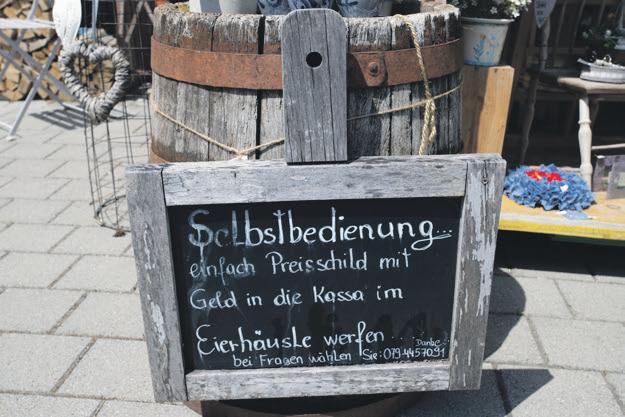 Selbstbedienung...
einfach Preisschild mit
Geld in die Kassa im
Eierhäusle werfen...
Danke
bei Fragen wählen Sie: 079 4457091